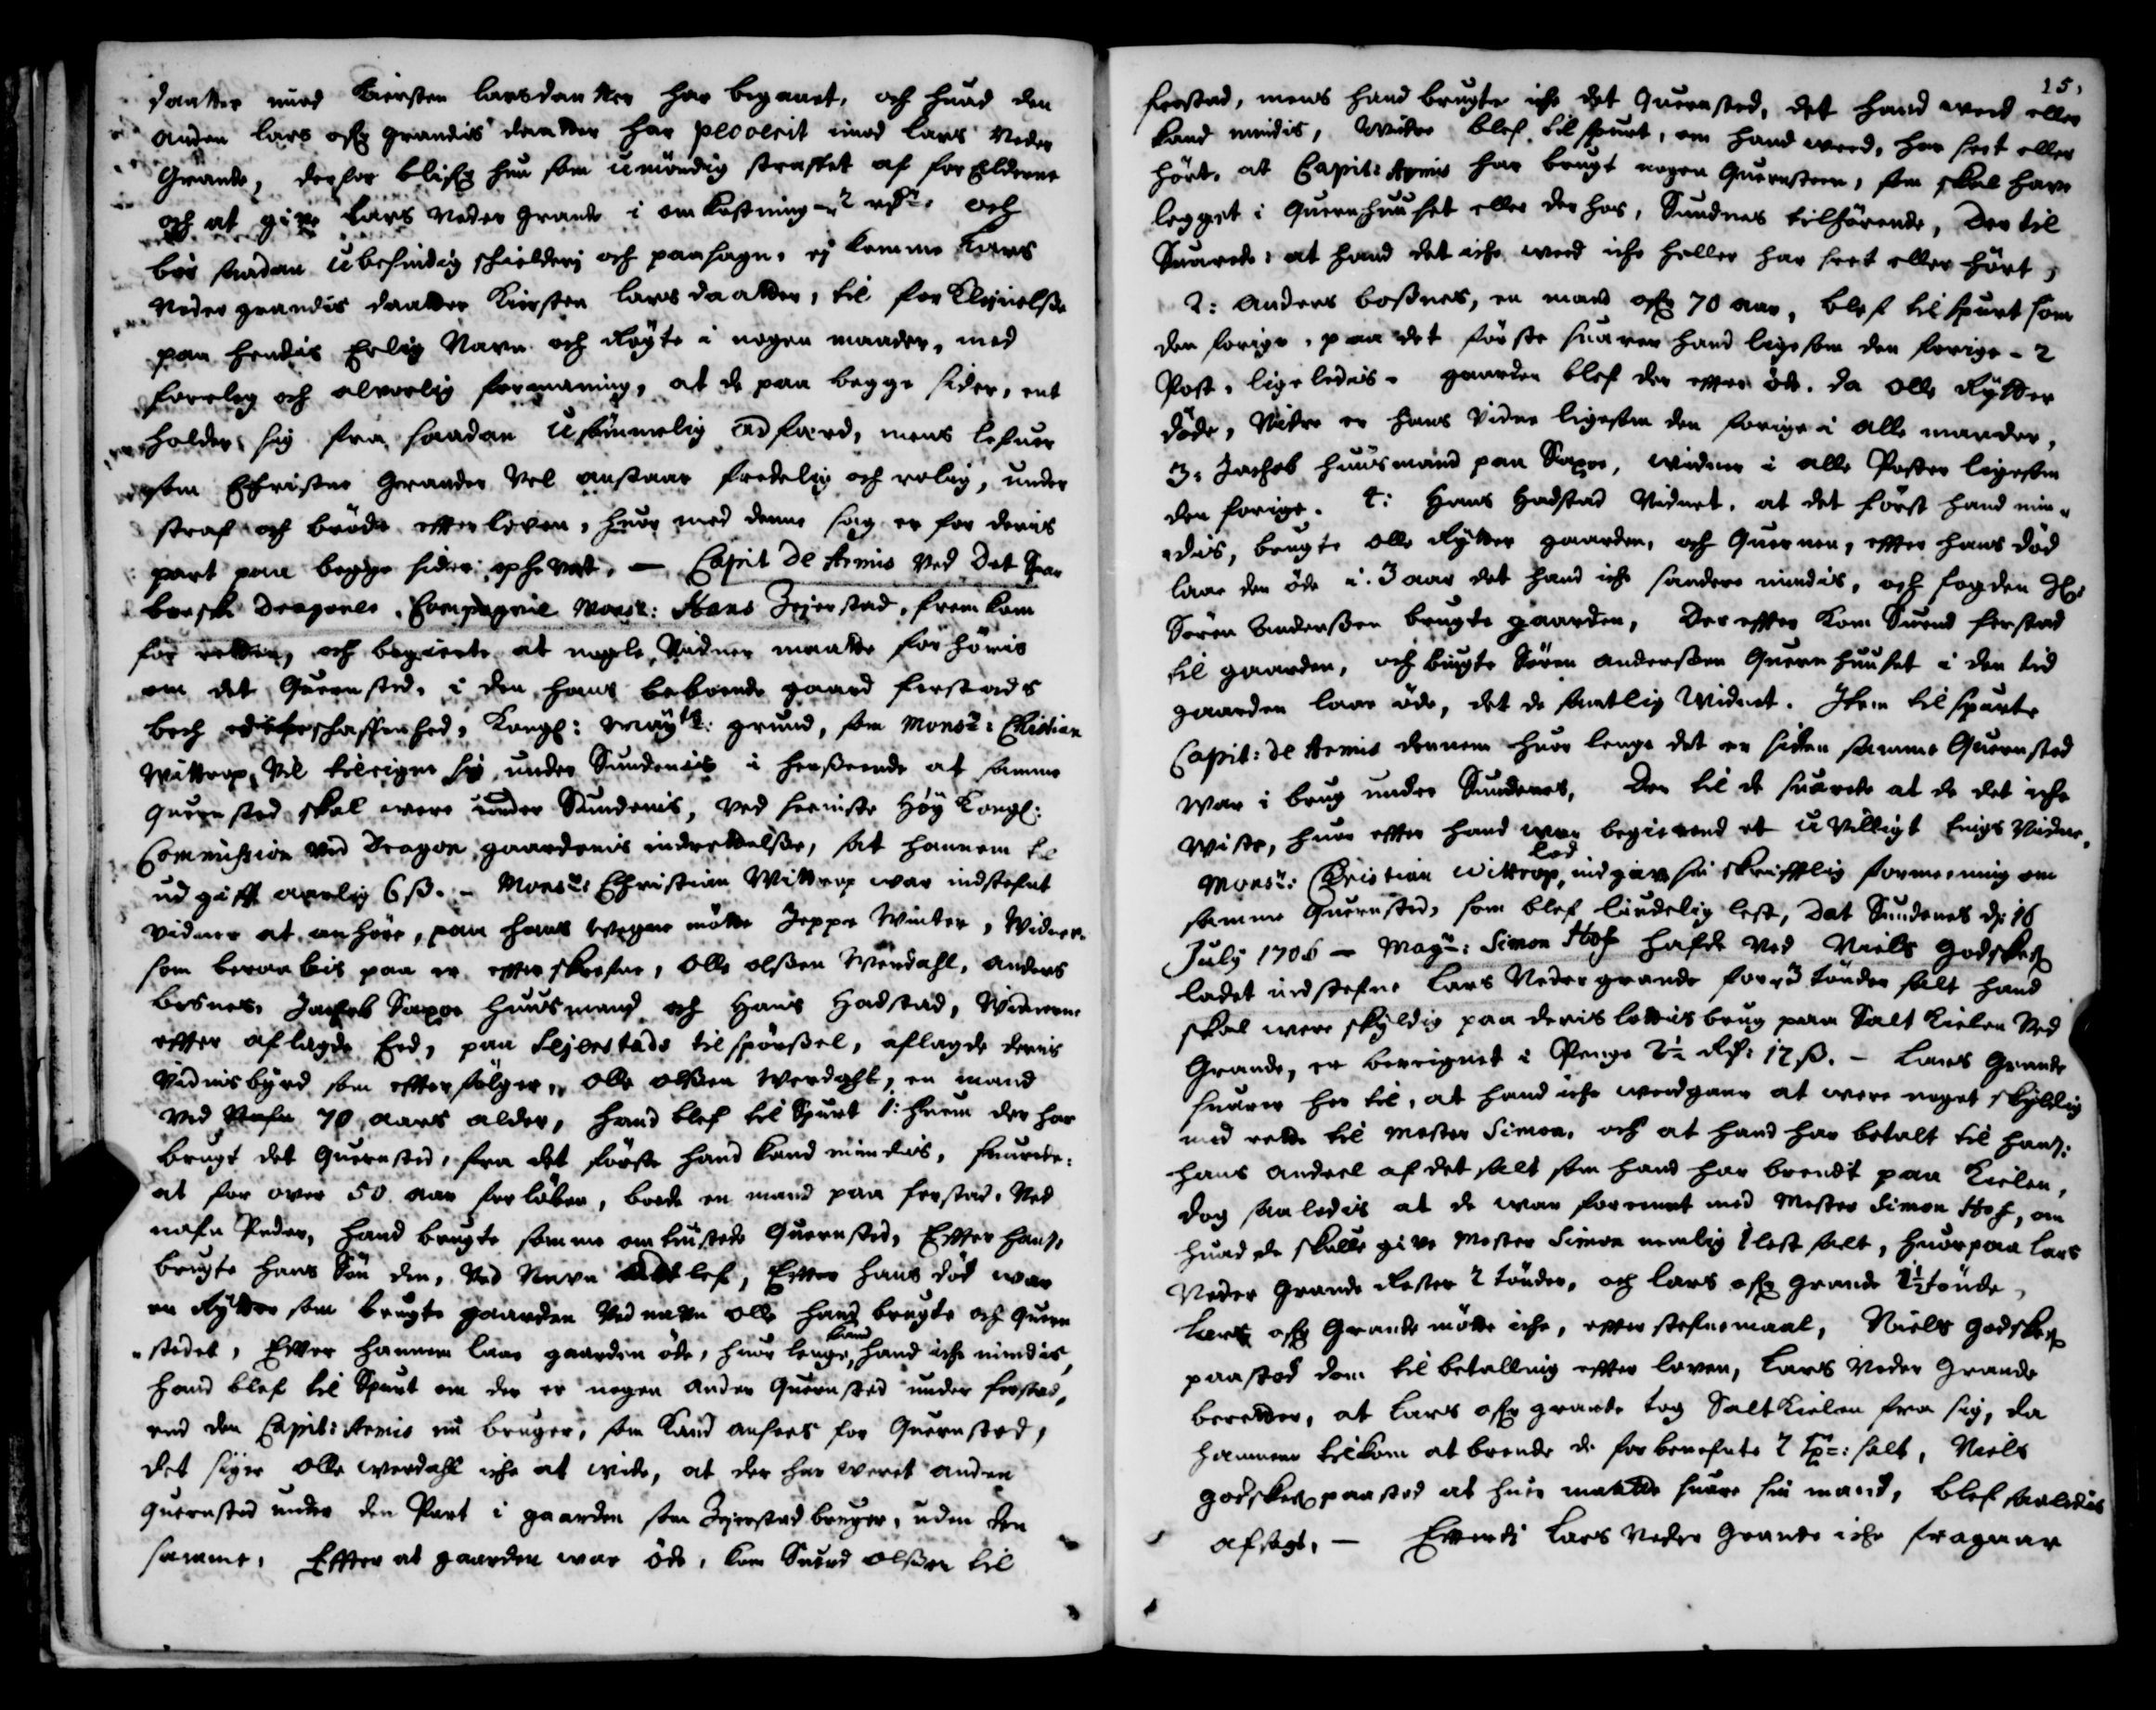 daatter med Kiersten larsdaatter har begaaet, och huad den
anden lars øfr grandis daatter har pløverit imod lars Neder
Grande, derfor blifr hun som umöndig straffet af for Elderne
och at give Lars Neder grande i omkostning - 2 rdr. och
bör saadan ubesindig schielderj och paasagn, ej komme Lars
Neder grandis daatter Kiersten larsdaatter, til forKlejnelße
paa hendis Erlig Navn och Røgte i nogen maader, med
forelæg och alvorlig formaning, at de paa begge sider, ent
holder sig fra saadan usömmelig adfærd, mens lefuer
som Christne Grander vel anstaar fredelig och rolig, under
straf och bröde effter loven, huor med denne sag er for deris
part paa begge sider ophevet. — Capit de Armis ved Det Spar
boeske Dragoner Compagnie Monsr: Hans Jejerstad, fremkom
for retten, och begierte at nogle Vidner maatte forhöris
om det Quernsted, i den hans beboende gaard ferstads
bech schaffenhed, Kongl: Mayts: grund, som Monsr: Christian
Wittrop, vil tileigne sig under Sundenis i henßeende at samme
quernsted skal were under Sundenis, ved seeniste Höy Kongl:
Commission ved Dragon gaardenis indrettelße, sat hannem til
udgifft aarlig 6 ß. - Monsr: Christian Wittrop war indstefnt
vidner at anhöre, paa hans wegne mötte Jeppe Winter, Widner
som beraabis paa er effterskrefne, Olle olßen Werdahl, Anders
bosnes, Jachob Saxoe huusmand och Hans Hadstad, Widnerne
effter aflagde Eed, paa Lejerstads tilspörßel, aflagde deris
Vidnisbyrd som effterfölger, Olle olßen Werdahl, en mand
ved 70 aars alder, hand blef til Spurt 1: huem der har
brugt det Quernsted, fra det förste hand kand mindis, suarede:
at for over 50 aar forlöben, boede en mand paa ferstad, Ved
nafn Peder, hand brugte samme omtuistede Quernsted, Effter hans
brugte hans Sön den, ved Navn lef, Effter hans död war
en Rytter som brugte gaarden ved navn olle hand brugte och quern
stedet, Effter hannem laae gaarden öde, huor lenge kand hand iche mindis,
hand blef til Spurt om der er nogen anden Quernsted under ferstad,
end den Capit: Armis nu bruger, som kand ansees for Quernsted,
det siger Olle werdahl iche at wide, at der har weret anden
quernsted under den Part i gaarden som Jejerstad bruger, uden den
samme, Effter at gaarden war öde, kom Suend olßen til
15.
ferstad, mens hand brugte iche det Quernsted, det hand weed eller
kand mindis, Widere blef tilspurt, om hand weed, har seet eller
hört, at Capit: Armis har brugt nogen Quernsteen, som skal have
legget i Quernhuuset eller der hos, Sundnes tilhörende, der til
Suarede: at hand det iche weed iche heller har seet eller hört,
2: Anders boßnes, en mand ofr 70 aar, blef til Spurt som
den forige, paa det förste suarer hand ligesom den forige - 2
Post, ligeledis - gaarden blef der effter öde, da Olle Rytter
döde, Videre er hans Vidne ligesom den forige i alle maader,
3: Jachob huusmand paa Saxoe, widner i alle Poster ligesom
den forige. 4: Hans Hadstad Vidnet, at det först hand min
dis, brugte olle Rytter gaarden, och Quernen, effter hans död
laae den öde i 3 aar det hand iche sandere mindis, och fogden Hr:
Sören Anderßen brugte gaarden, Der effter kom Suend ferstad
til gaarden, och brugte Sören anderßen Quernhuuset i den tid
gaarden laae öde, det de samtlig Widnet. Item tilspurte
Capit: de Armis dennem huor lenge det er siden samme Quernsted
war i brug under Sundenes, Der til de suarede at de det iche
wiste, huor effter hand war begierend et uvilligt tings Vidne,
Monsr: Christian Wittrop, lod indgive sin skrifftlig formeening om
samme Quernsted, som blef lydelig lest, Dat Sundenes d: 16
July 1706 — Magr: Simon Hof hafde ved Niels Godsker
ladet indstefne Lars Neder grande for 3 tönder salt hand
skal were skyldig paa deris lottis brug paa Salt Kielen ved
Grande, er beregnet i Penge 2½ Rd: 12 ß. - Lars Grande
suarer her til, at hand iche wedgaar at were noget skyldig
med rette til Mester Simon, och at hand har betalt til ham:
hans andeel af det salt som hand har brendt paa Kielen,
dog saaledis at de war foreenet med Mester Simon Hof, om
huad de skulle give Mester Simon nemlig 1 lest salt, huorpaa lars
Neder Grande Rester 2 tönder, och lars ofr grande 1½ tönde,
Lars ofr Grande mötte iche, effter stefnemaal, Niels godsker
paastod dom til betalling effter loven, Lars Neder Grande
beretter, at Lars ofr grande tog SaltKielen fra sig, da
hannem tilkom at brende de forbenefnte 2 salt, Niels
godsker paastod at huer maatte suare sin mand, blef saaledis
afsagt, — Efterdj Lars Neder Grande iche fragaar